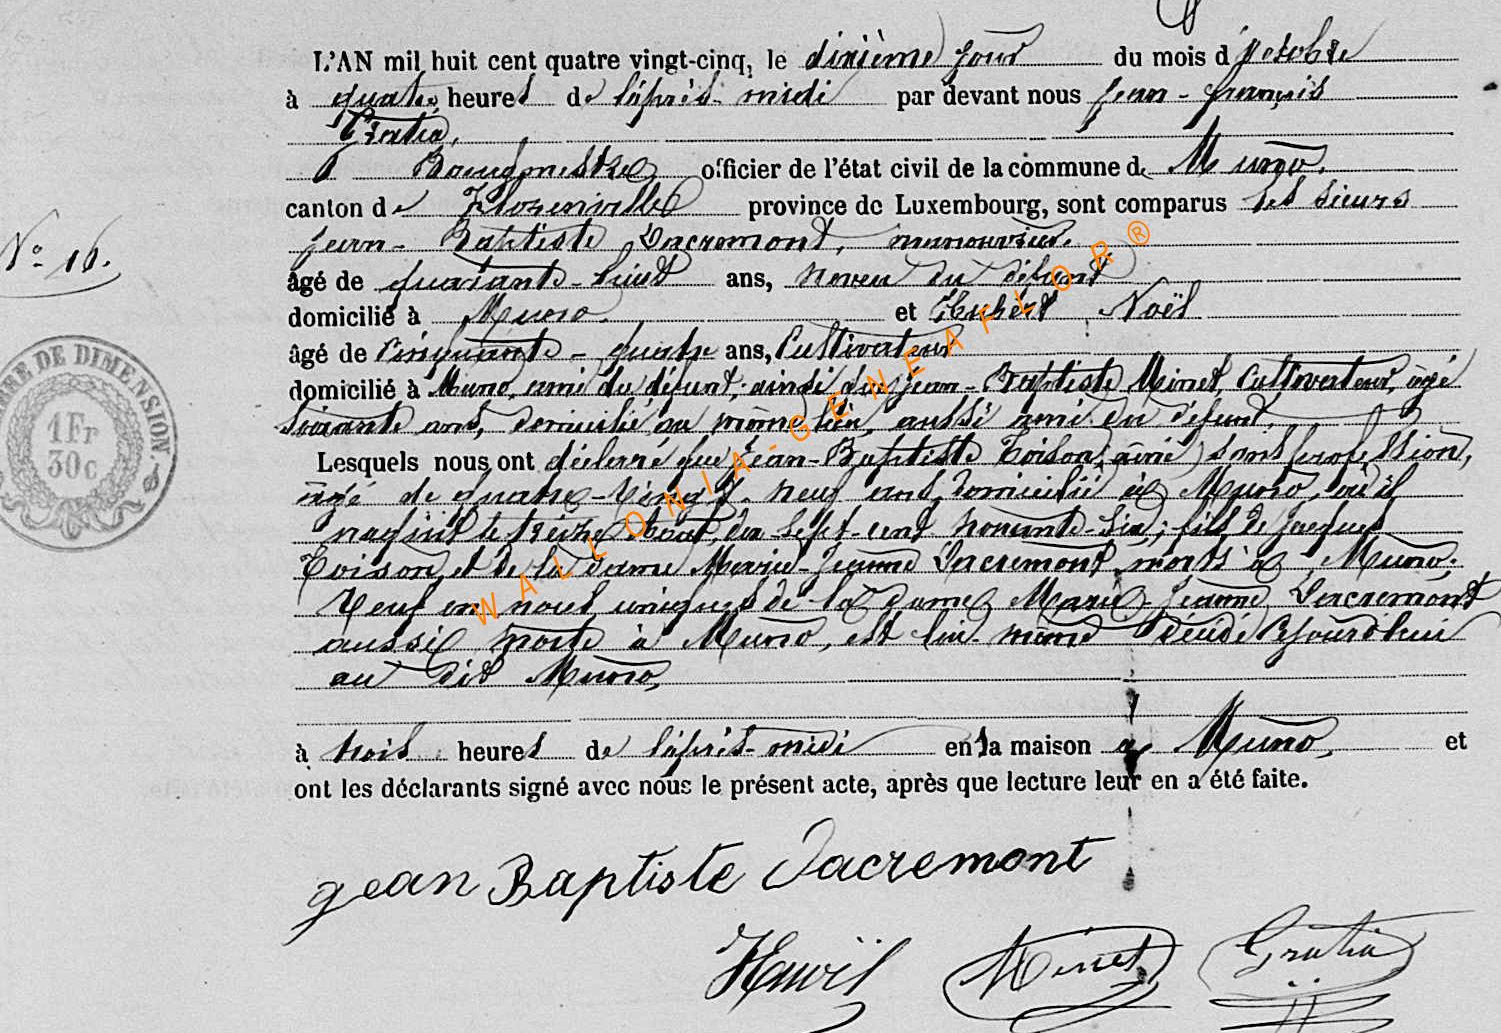 L'AN mil huit cent quatre vingt-cinq, le dixième jour du mois d'octobre
à quatre heures de l'après-midi par devant nous Jean-françois
Gratia,
Bourgmestre officier de l'état civil de la commune de Muno,
canton de Florenville province de Luxembourg, sont comparus les sieurs
Jean-Baptiste Lacremont, manouvrier,
N° 16.
âgé de quarante-huit ans, neveu du défunt
domicilié à Muno. et Hubert Noël
âgé de cinquante-quatre ans, Cultivateur
domicilié à Muno, ami du défunt; ainsi que Jean-Baptiste Minet, Cultivateur, âgé
soixante ans, domicilié au même lieu, aussi ami du défunt.
Lesquels nous ont déclaré que Jean-Baptiste Toison, ainé, sans profession,
âgé de quatre-vingt-neuf ans, domicilié à Muno, où il
naquit le treize Août, dix sept-cent nonante-six; fils de Jacques
Toison, et de la dame Marie-Jeanne Lacremont, morts à Muno;
Veuf en noces uniques de la dame Marie Jeanne Lacremont
aussi morte à Muno, est lui-même décédé aujourd'hui
au dit Muno,
à trois heures de l'après-midi en la maison à Muno, et
ont les déclarants signé avec nous le présent acte, après que lecture leur en a été faite.
TIMBRE DE DIMENSION.
1Fr
30c
WALLONIA-GENEAFLOR®
jean Baptiste Lacremont
Hnoël Minet Gratia